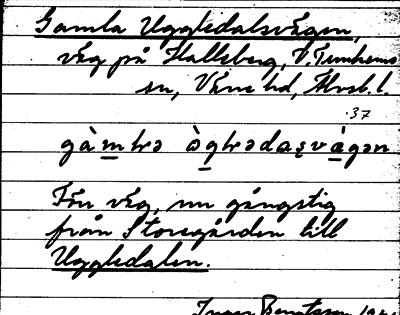 Gamla Uggledalsvägen,
väg på Halleberg, V. Tunhems
sn, Väne hd, Älvsb. l.
.37
gàmɫrə ògɫrədaʂvagən
Förr väg, nu gångstig
från Storegården till
Uggledalen.